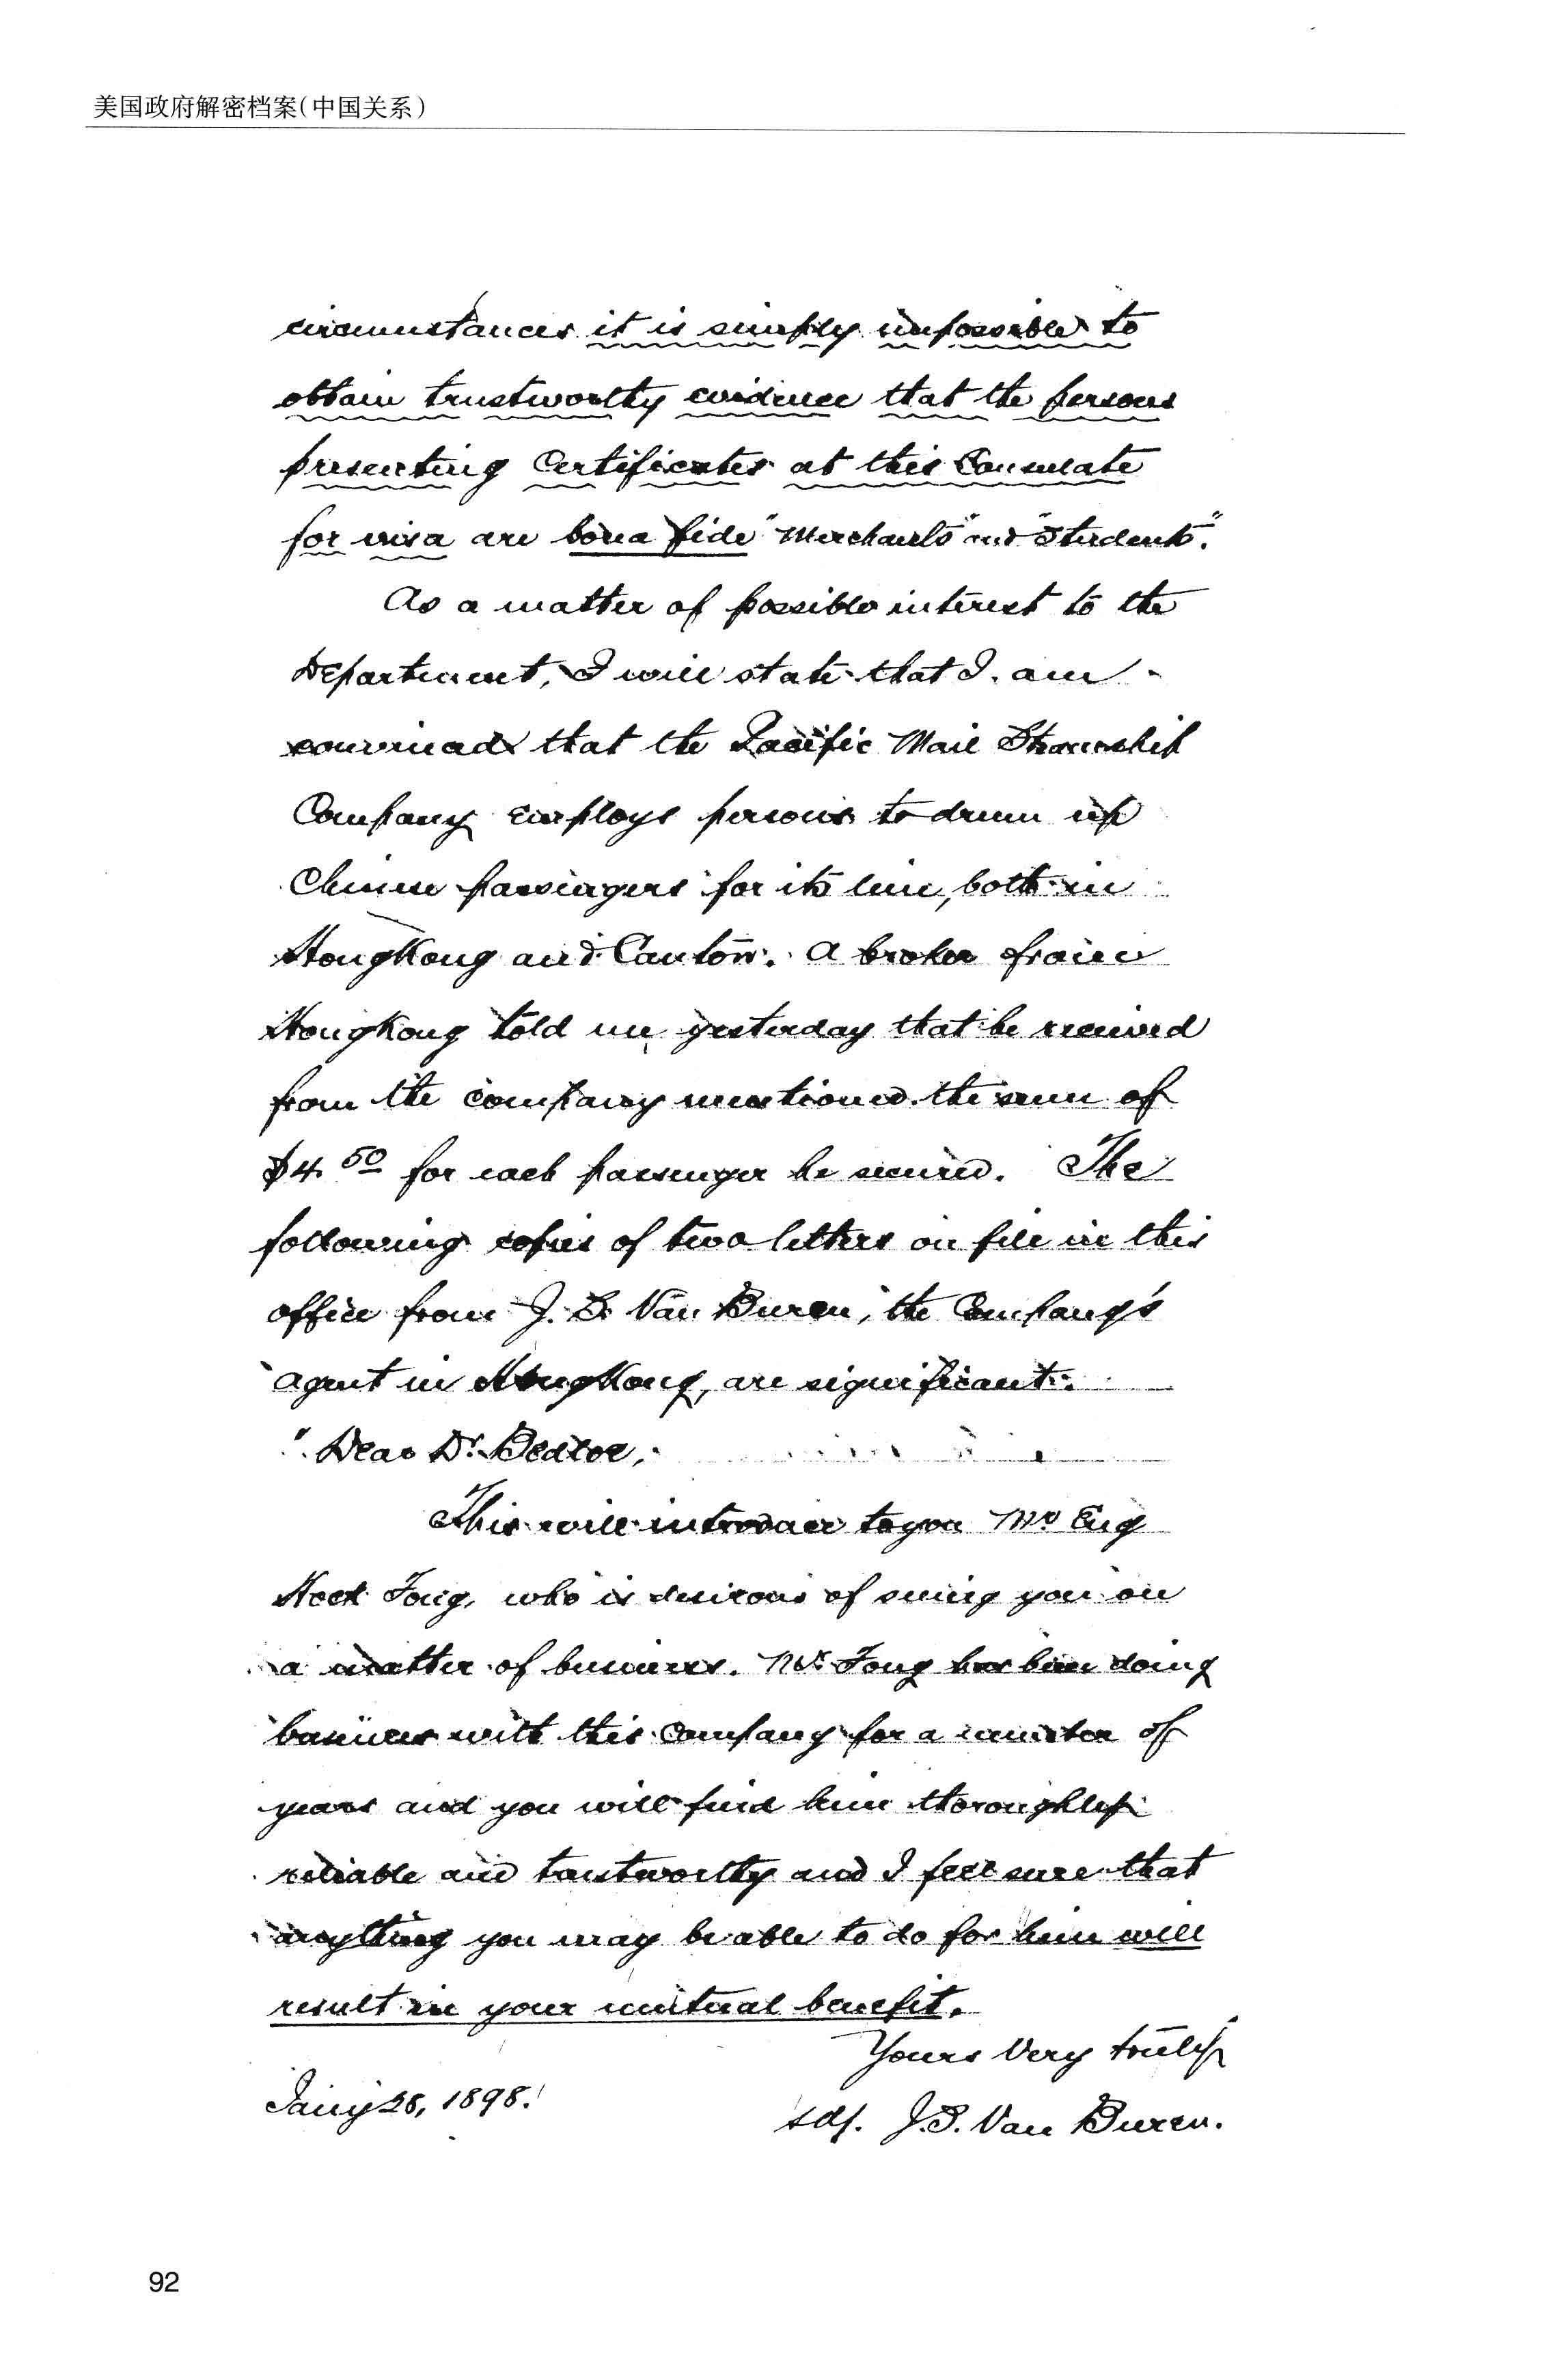 美国政府解密档案(中国关系)
circumstances it is simply impossible to
obtain trustworthy evidence that the persons
presenting Certificates at this Consulate
for visa are bona fide "Merchants" and "Students".
As a matter of possible interest to the
Department, I will state that I am
convinced that the Pacific Mail Steamship
Company employs persons to drum up
Chinese passengers for its line, both in
HongKong and Canton. A broker from
HongKong told me yesterday that he received
from the company mentioned the sum of
$4.50 for each passenger he secured. The
following copies of two letters on file in this
office from J. S. Van Buren, the Company's
agent in HongKong, are significant:
"Dear Dr. Bedloe,
This will introduce to you Mr Eng
Hock Fong, who is desirous of seeing you on
a matter of business. Mr. Fong has been doing
business with this Company for a number of
years and you will find him thoroughly
reliable and trustworthy and I feel sure that
anything you may be able to do for him will
result in your mutual benefit.
Yours Very truly
Jany 28, 1898.
sd/. J.S. Van Buren.
92